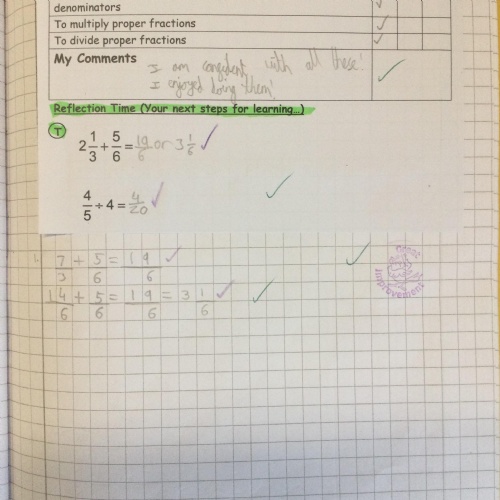 denominators
To multiply proper fractions
To divide proper fractions
My Comments I am confident with all these!
I enjoyed doing them!
Reflection Time (Your next steps for learning…)
T
2 1/3 + 5/6 = 19/6 or 3 1/6
4/5 ÷ 4 = 4/20
1. 7/3 + 5/6 = 19/6
14/6 + 5/6 = 19/6 = 3 1/6
Great Improvement